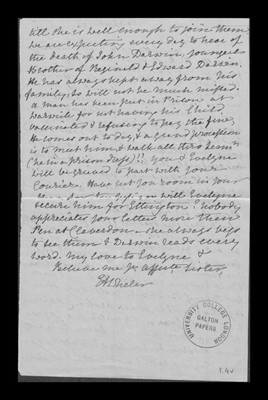 till she is well enough to join them
we are expecting every day to hear of
the death of John Darwin, youngest
Brother of Reginald & Edward Darwin.
He has always kept away from his
family, so will not be much missed.
a man has been put in Prison at
Warwick for not having his Child
vaccinated & refusing to pay the fine,
He comes out to day, & a grand procession
is to meet him & walk all thro Leam
(he in a prison dress)!! you & Evelyne
will be grieved to part with your
Courier. Have got you room in your
will Evelyne
secure him for Ettington? nobody
appreciates your letters more than
Pen at Clevedon - she always begs
to see them & Darwin reads every
word. my love to Evelyne &
Believe me yr affecte Sister,
E A Wheler
UNIVERSITY COLLEGE LONDON
GALTON
PAPERS